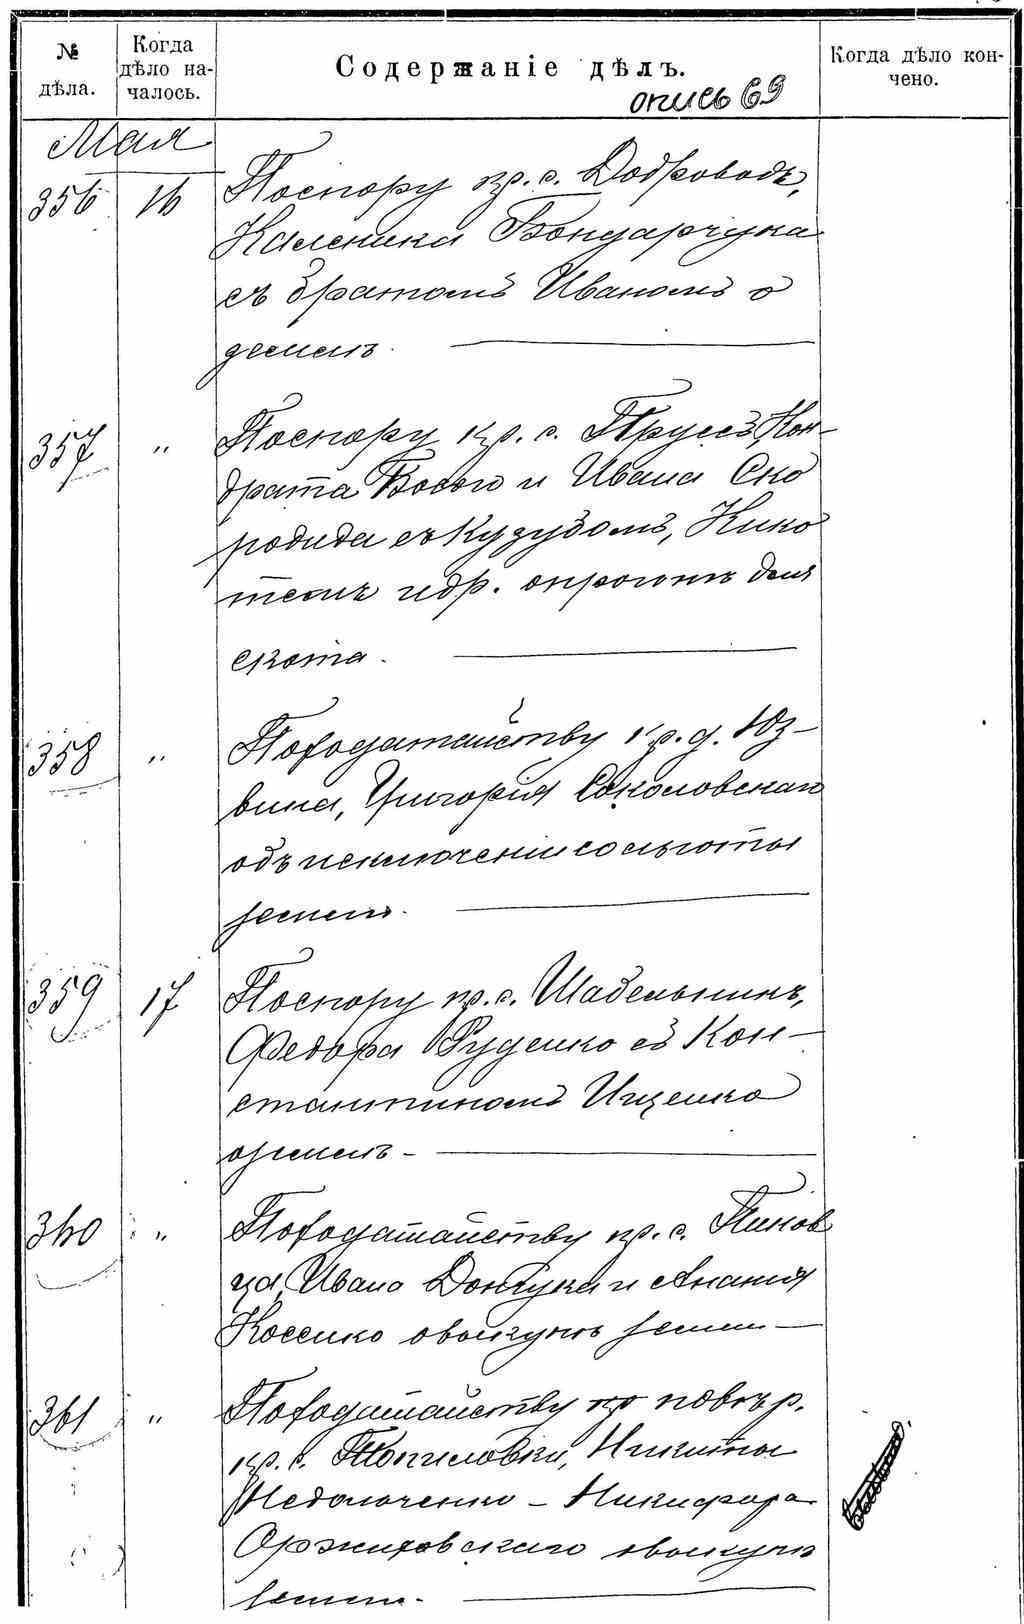 № дѣла.
Когда дѣло началось.
Содержаніе дѣлъ.
Когда дѣло кончено.
опись 69
Мая
356 16 По спору кр. с. Доброводъ,
Каленика Бондарчука
съ братомъ Иваномъ о
земли.
357 " По спору кр. с. Прусъ, Кон-
драта Босого и Ивана Ско
родида съ Кузубомъ,
и др. о прогонѣ для
скота.
358 " По ходатайству кр. д. Юз-
вина, Григорія Соколовскаго
объ исключеніи со льготы
земли.
359 17 По спору кр. с. Шабельникъ,
Федора Руденко съ Кон-
стантиномъ Ищенко
о земли -
360 " По ходатайству кр. с. Пиков
ца, Ивана и Анания
Коссенко о выкупѣ земли -
361 " По ходатайству повѣр.
кр. с. Топиловки, Никиты
- Никифора
Оржиховскаго о выкупѣ
земли. -